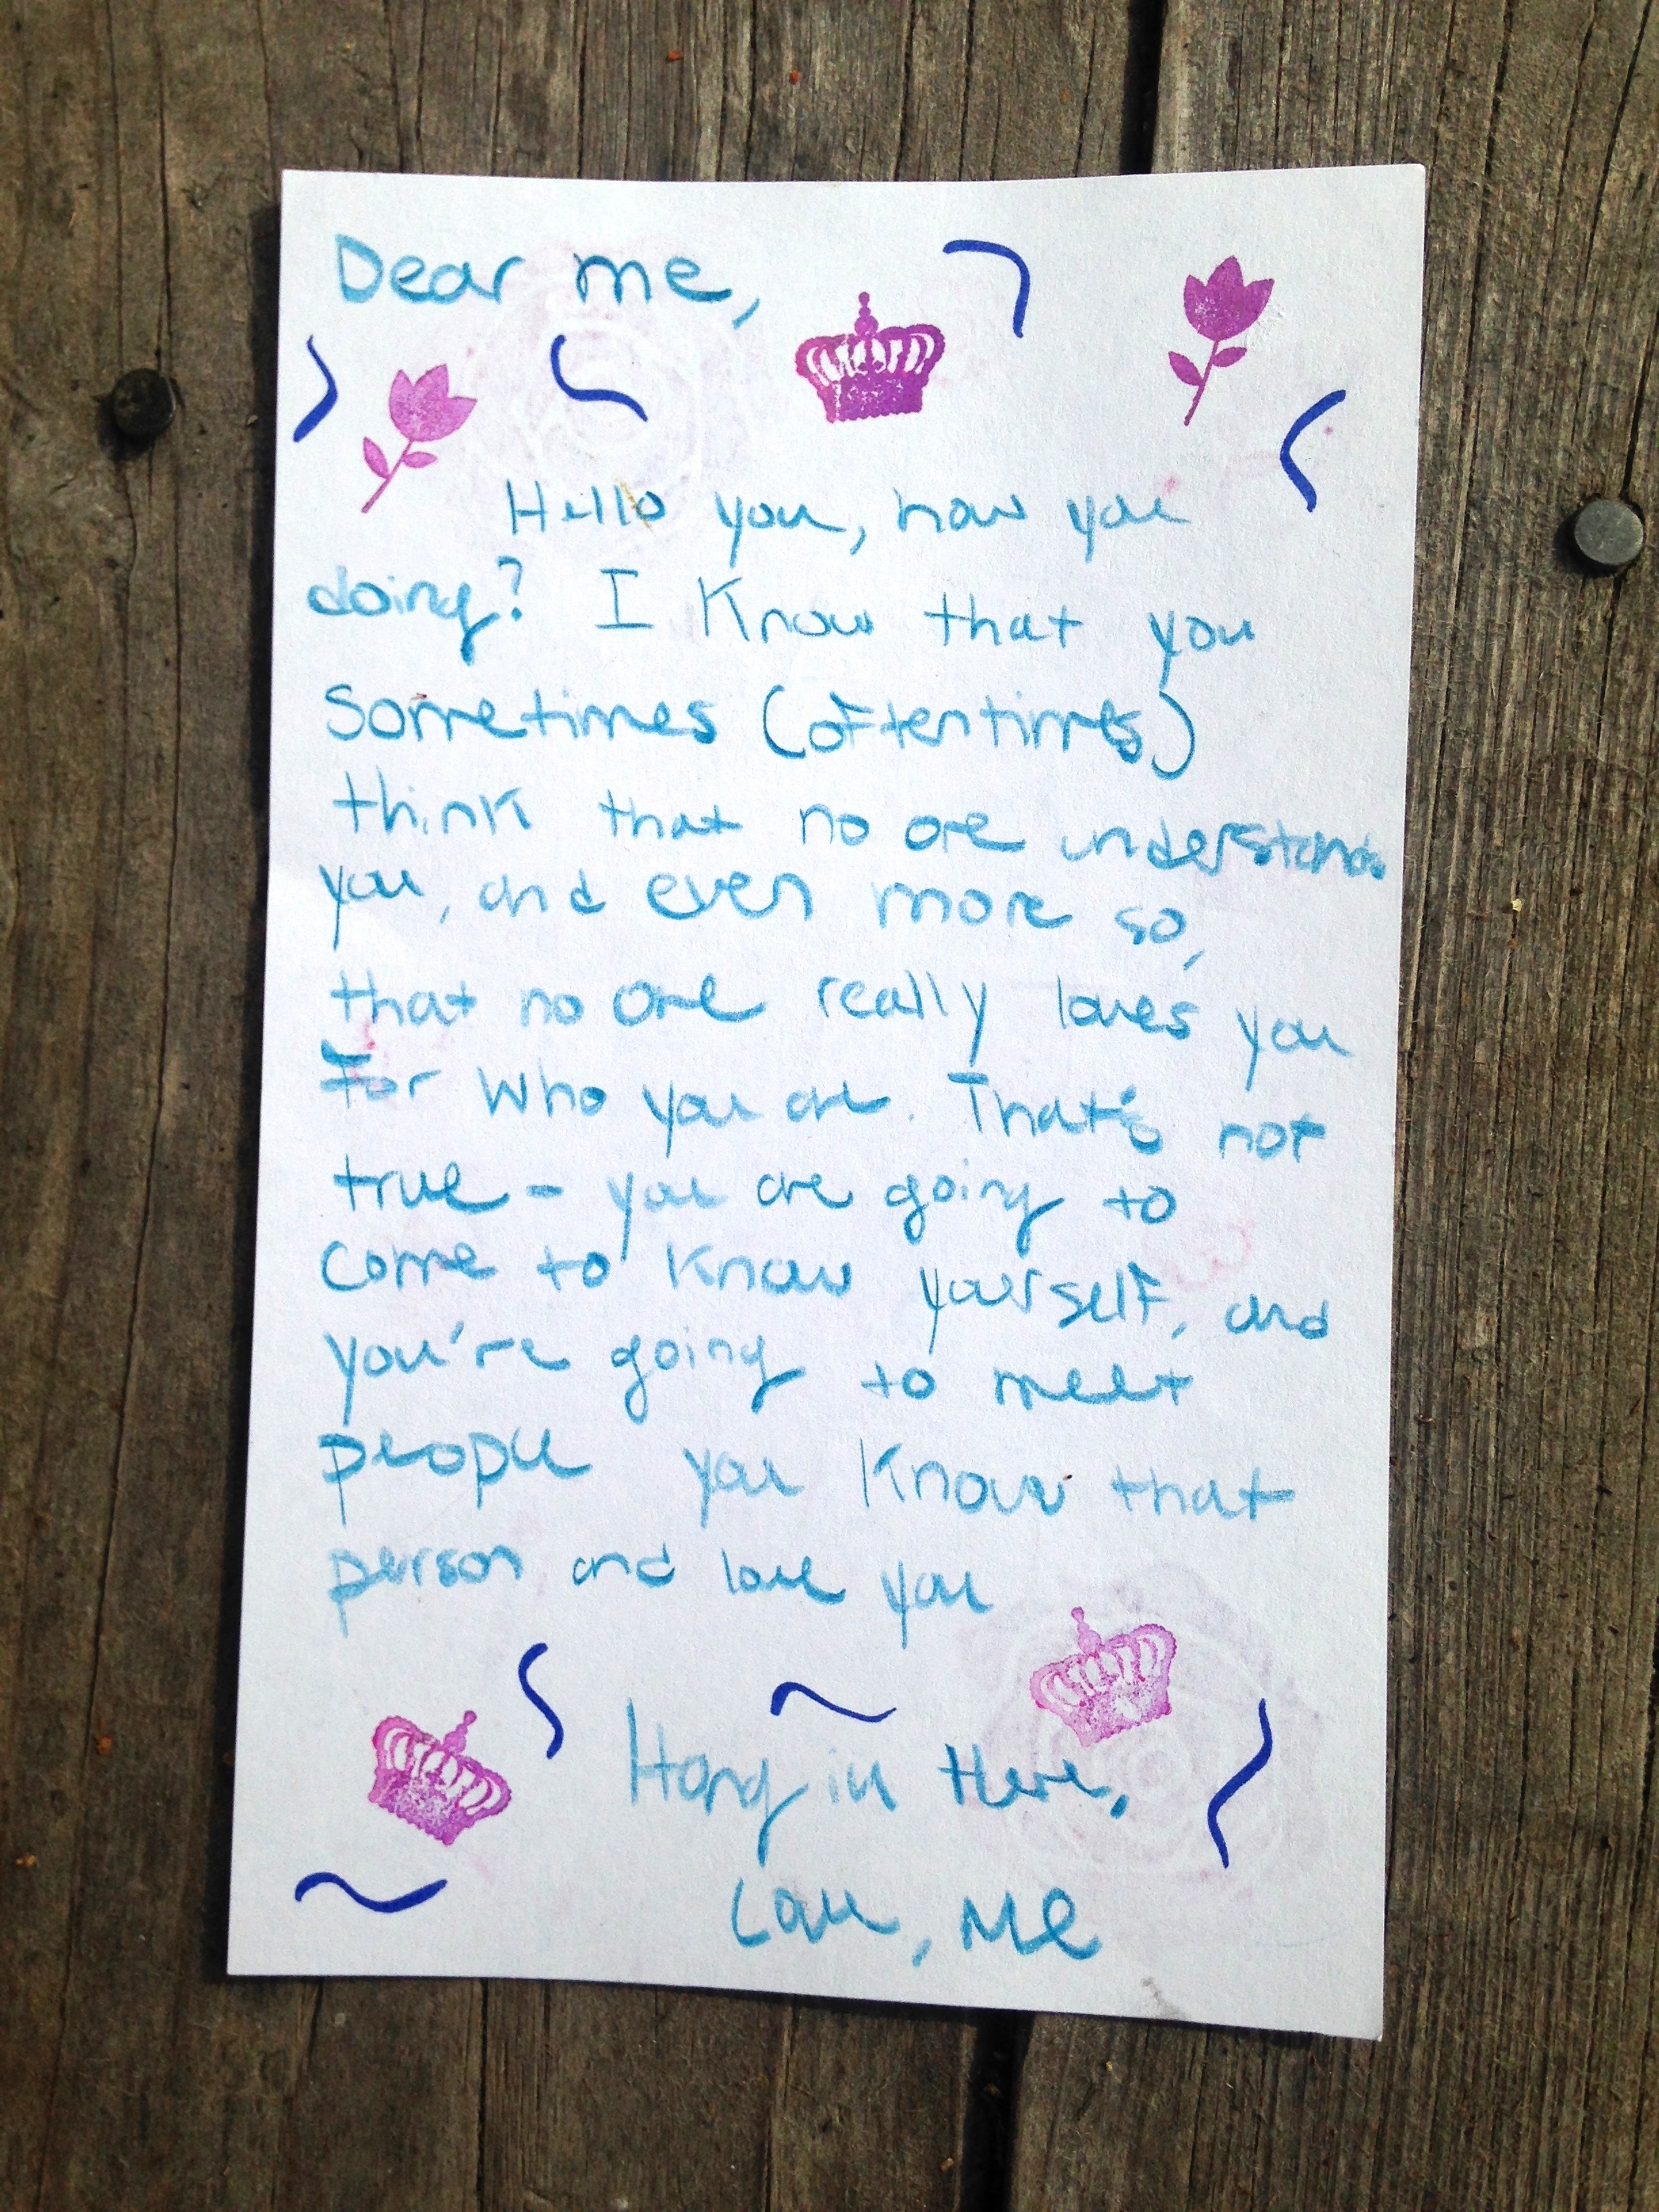 Dear me,
Hello you, how you
doing? I know that you
sometimes (oftentimes)
think that no one understands
you, and even more so,
that no one really loves you
for who you are. That's not
true - you are going to
come to know yourself, and
you're going to meet
people you know that
person and love you
Hang in there,
Love, Me